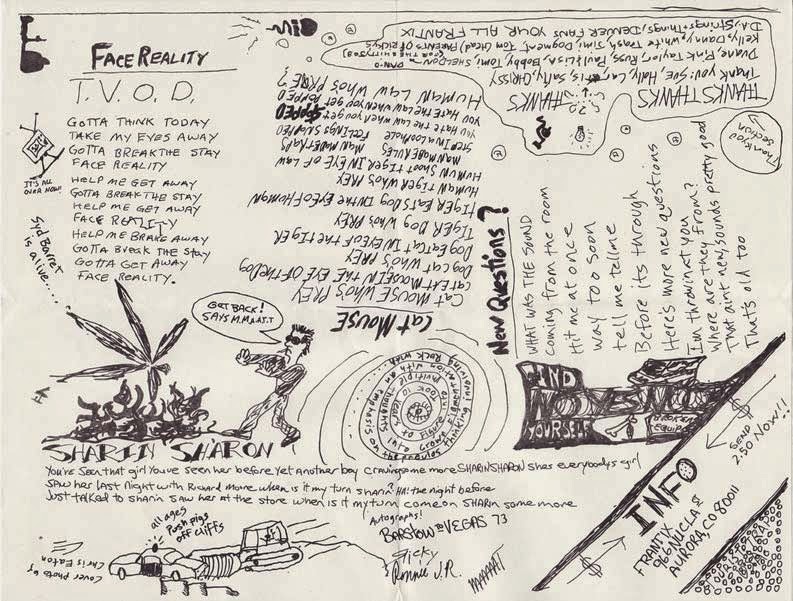 FACE REALITY
T.V.O.D.
GOTTA THINK TODAY
TAKE MY EYES AWAY
GOTTA BREAK THE STAY
FACE REALITY
HELP ME GET AWAY
GOTTA BREAK THE STAY
HELP ME GET AWAY
FACE REALITY
HELP ME BRAKE AWAY
GOTTA BREAK THE STAY
GOTTA GET AWAY
FACE REALITY.
IT'S ALL
OVER NOW!
Syd Barret
is alive....
GET BACK!
SAYS M.M.A.T.T
CAT MOUSE
CAT MOUSE WHO'S PREY
CAT EAT MOUSE IN THE EYE OF THE DOG
DOG CAT WHO'S PREY
DOG EAT CAT IN EYE OF THE TIGER
TIGER DOG WHO'S PREY
TIGER EATS DOG IN THE EYE OF HUMAN
HUMAN TIGER WHO'S PREY
HUMAN SHOOT TIGER IN EYE OF LAW
MAN MADE RULES
MAN MADE TRAPS
FEELINGS SLAPPED
you HATE the LAW when you get
POPPED
HUMAN LAW WHO'S PRONE?
THANKS THANKS THANKS
Thank you: Sue, Holly, Carl, is, Sally, CHRISSY
Duane, Pink, Taylor, Russ, Paul+Lisa, Bobby, Tomi,
Kelly, Danny, White Trash, Jimi, Dogment, Tom (Head),
D.A., Strings+Things, DENVER FANS YOUR ALL FRANTIX
Thank you
section
New Questions?
WHAT WAS THE SOUND
coming from the room
Hit me at once
way too soon
tell me tell me
Before its through
Here's more new questions
I'm throwin at you
Where are they from?
That aint new, sounds pretty good
That's old too
FIND
YOURSELF
SHARIN SHARON
You've seen that girl You've seen her before yet another boy craving some more SHARIN SHARON shes everybodys girl
Saw her last night with Richard More when is it my turn sharin Hit the night before
Just talked to sharin saw her at the store when is it my turn come on SHARIN some more
Autographs!
BARSTOW TO VEGAS 73
Ricky
Ronnie J.R.
MAAAAAT
all ages
Push pigs
off cliffs
Cover Photo by
Chris Eaton
INFO
FRANTIX
966 YUCLA St
AURORA, CO 80011
SEND
2.50 NOW!!